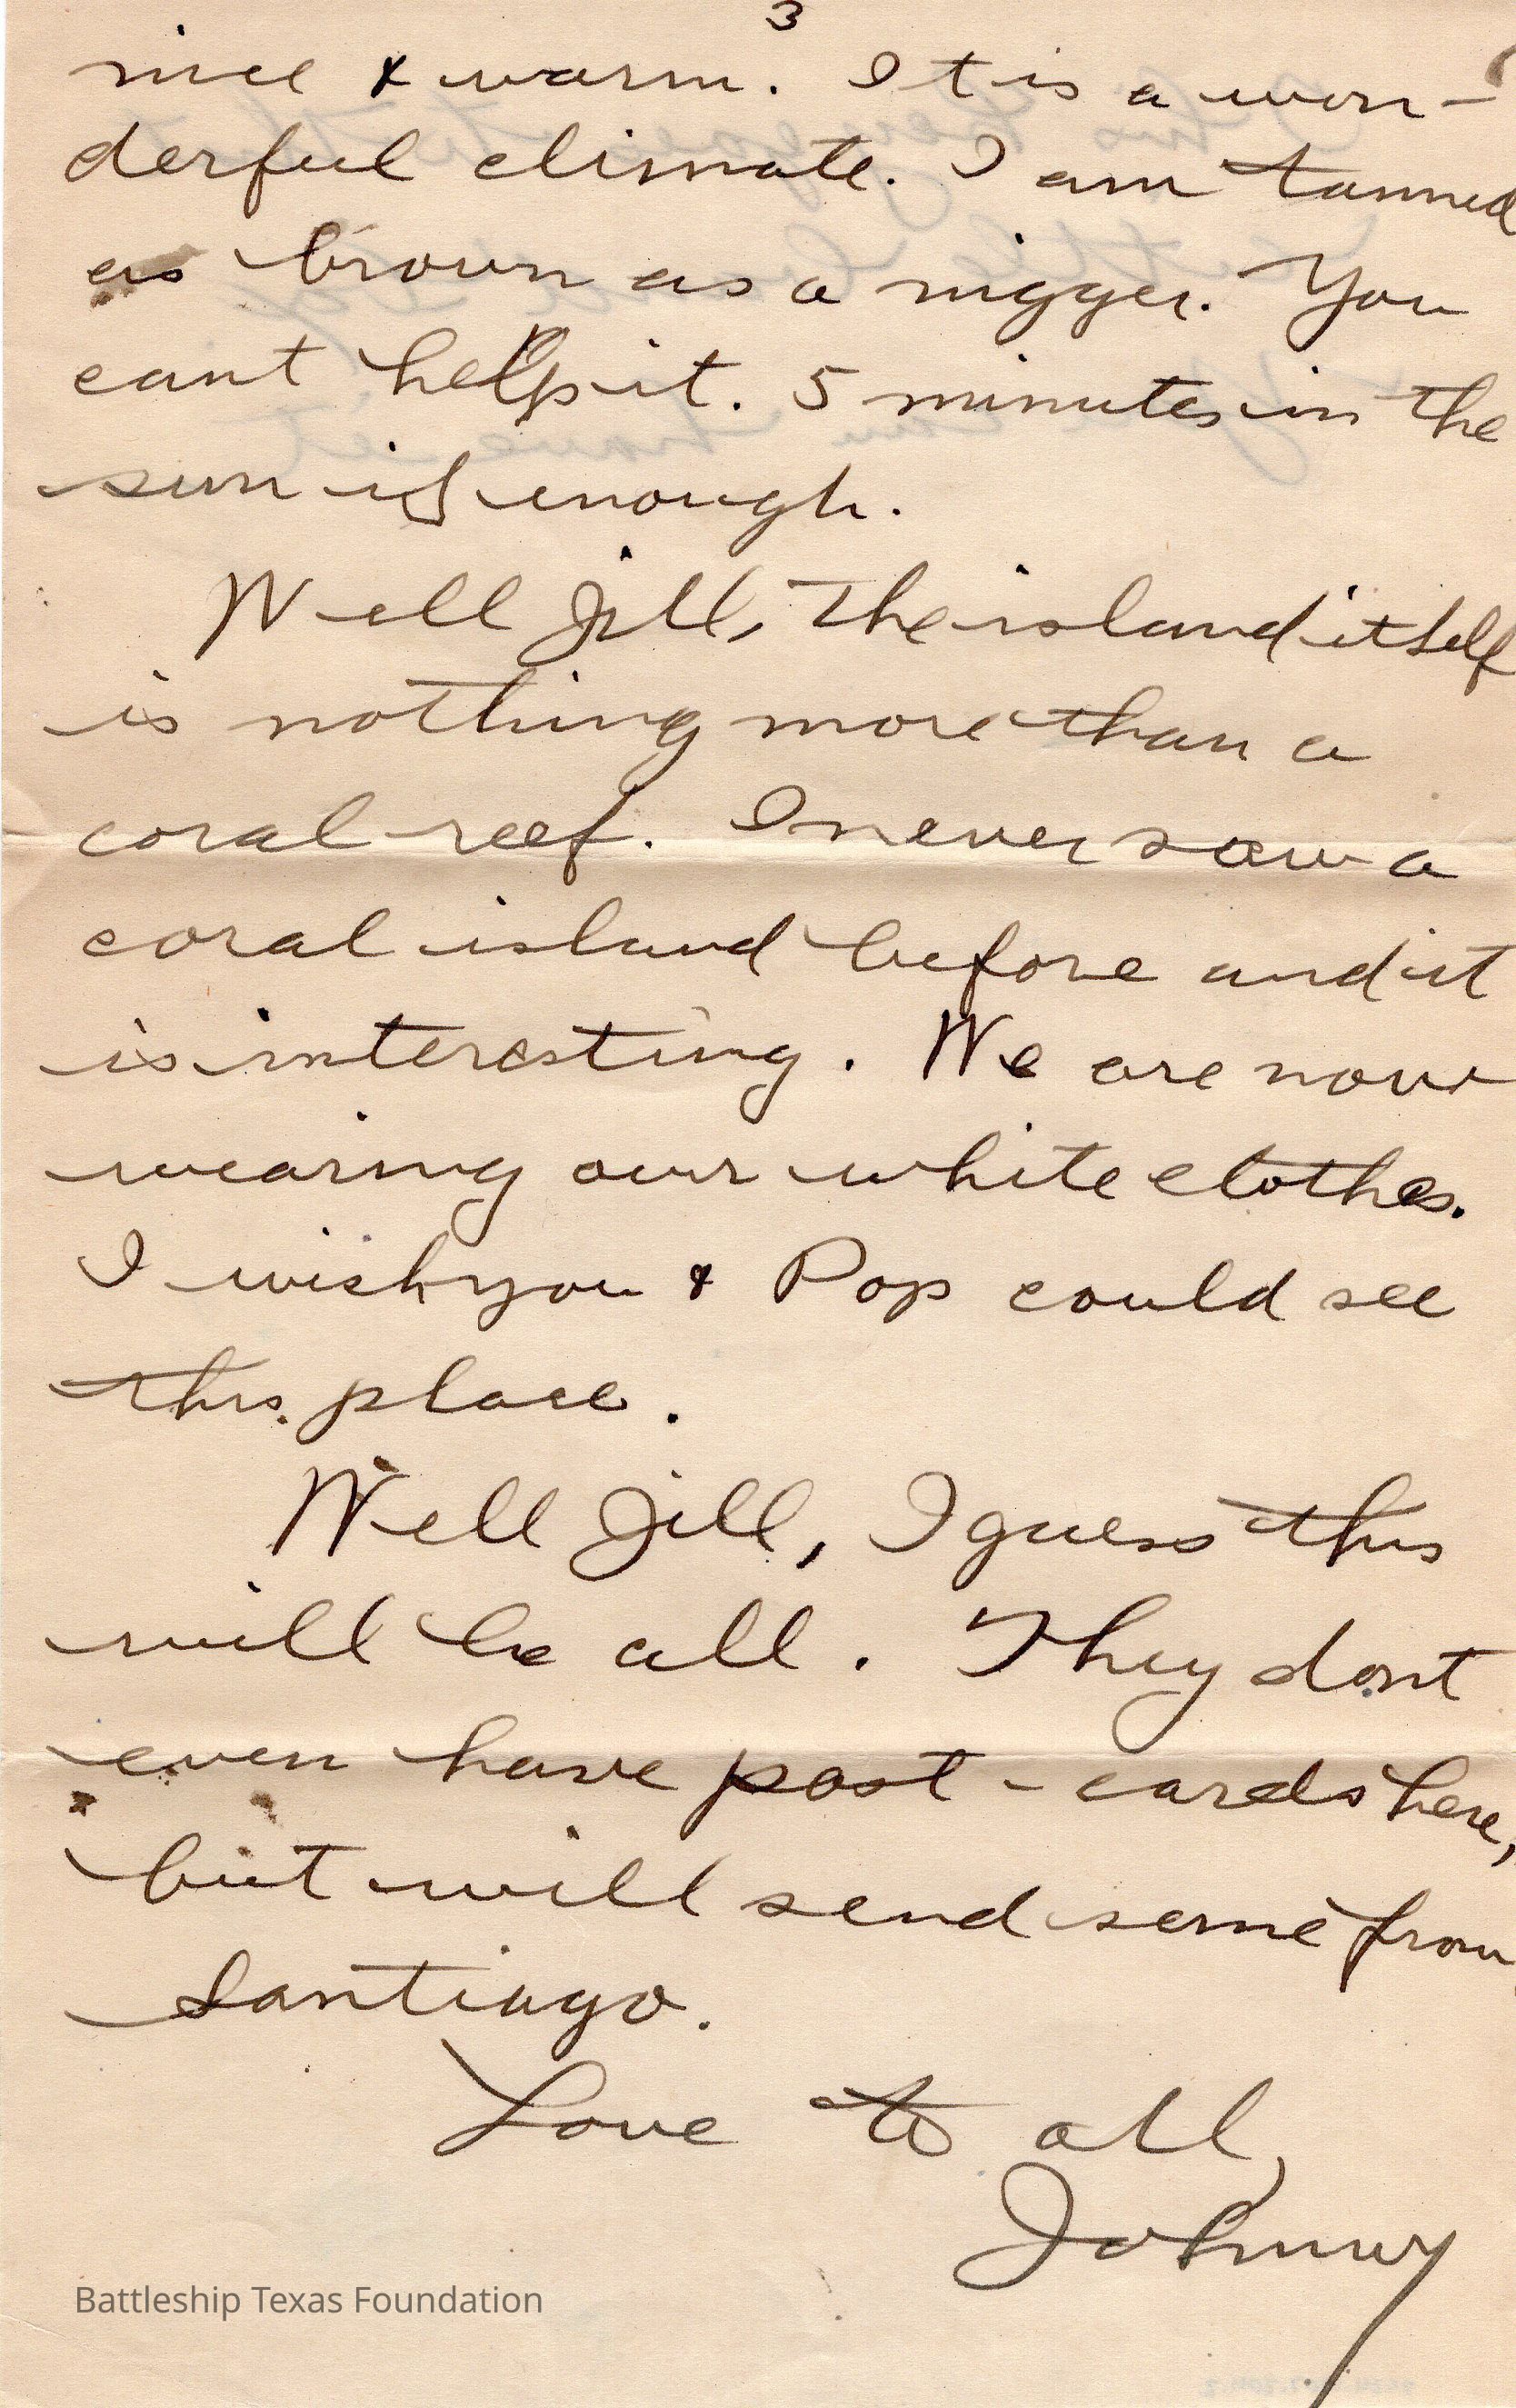 3
nice & warm. It is a won-
derful climate. I am tanned
as brown as a nigger. You
cant help it. 5 minutes in the
sun is enough.
Well Jill, the island itself
is nothing more than a
coral reef. I never saw a
coral island before and it
is interesting. We are now
wearing our white clothes.
I wish you & Pop could see
this place.
Well Jill, I guess this
will be all. They dont
even have post-cards here,
but will send some from
Santiago.
Love to all,
Johnny
Battleship Texas Foundation